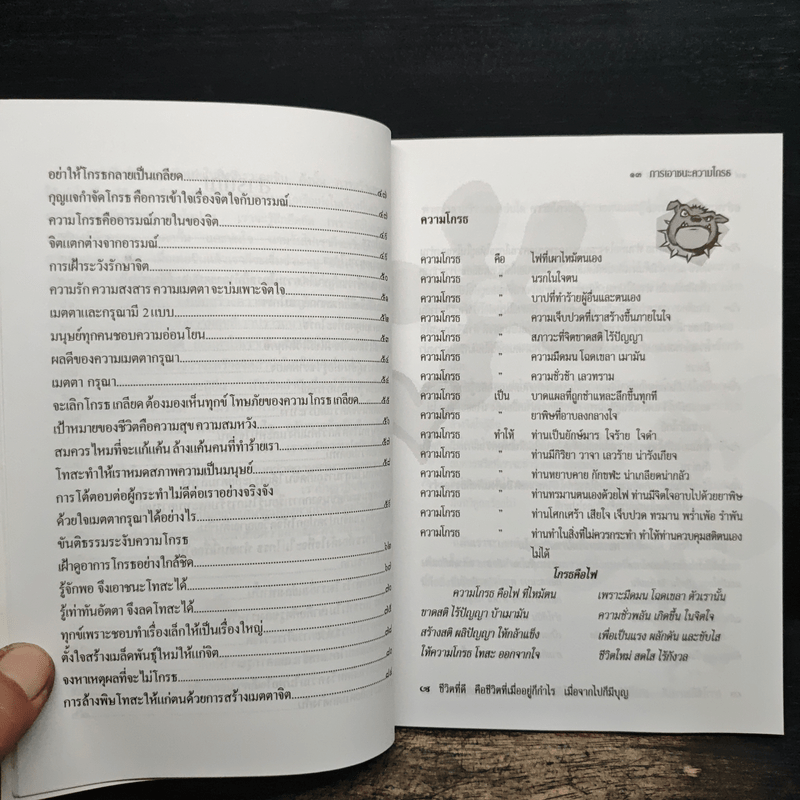 อย่าให้โกรธกลายเป็นเกลียด
กุญแจกำจัดโกรธ คือการเข้าใจเรื่องจิตใจกับอารมณ์
ความโกรธคืออารมณ์ภายในของจิต
จิตแตกต่างจากอารมณ์
การเฝ้าระวังรักษาจิต
ความรัก ความสงสาร ความเมตตา จะบ่มเพาะจิตใจ
เมตตาและกรุณามี 2 แบบ
มนุษย์ทุกคนชอบความอ่อนโยน
ผลดีของความเมตตากรุณา
เมตตา กรุณา
จะเลิกโกรธ เกลียด ต้องมองเห็นทุกข์ โทษภัยของความโกรธ เกลียด
เป้าหมายของชีวิตคือความสุข ความสมหวัง
สมควรไหมที่จะแก้แค้น ล้างแค้นคนที่ทำร้ายเรา
โทสะทำให้เราหมดสภาพความเป็นมนุษย์
การโต้ตอบต่อผู้กระทำไม่ดีต่อเราอย่างจริงจัง
ด้วยใจเมตตากรุณาได้อย่างไร
ขันติธรรมระงับความโกรธ
เฝ้าดูอาการโกรธอย่างใกล้ชิด
รู้จักพอ จึงเอาชนะโทสะได้
รู้เท่าทันอัตตา จึงลดโทสะได้
ทุกข์เพราะชอบทำเรื่องเล็กให้เป็นเรื่องใหญ่
ตั้งใจสร้างเมล็ดพันธุ์ใหม่ให้แก่จิต
จงหาเหตุผลที่จะไม่โกรธ
การล้างพิษโทสะให้แก่ตนด้วยการสร้างเมตตาจิต
๑๓ การเอาชนะความโกรธ
ความโกรธ
ความโกรธ คือ ไฟที่เผาไหม้ตนเอง
ความโกรธ " นรกในใจตน
ความโกรธ " บาปที่ทำร้ายผู้อื่นและตนเอง
ความโกรธ " ความเจ็บปวดที่เราสร้างขึ้นภายในใจ
ความโกรธ " สภาวะที่จิตขาดสติ ไร้ปัญญา
ความโกรธ " ความมืดมน โฉดเขลา เมามัน
ความโกรธ " ความชั่วช้า เลวทราม
ความโกรธ เป็น บาดแผลที่ถูกชำแหละลึกขึ้นทุกที
ความโกรธ " ยาพิษที่อาบลงกลางใจ
ความโกรธ ทำให้ ท่านเป็นยักษ์มาร ใจร้าย ใจดำ
ความโกรธ " ท่านมีกิริยา วาจา เลวร้าย น่ารังเกียจ
ความโกรธ " ท่านหยาบคาย กักขฬะ น่าเกลียดน่ากลัว
ความโกรธ " ท่านทรมานตนเองด้วยไฟ ท่านมีจิตใจอาบไปด้วยยาพิษ
ความโกรธ " ท่านโศกเศร้า เสียใจ เจ็บปวด ทรมาน พร่ำเพ้อ รำพัน
ความโกรธ " ท่านทำในสิ่งที่ไม่ควรกระทำ ทำให้ท่านควบคุมสติตนเอง
ไม่ได้
โกรธคือไฟ
ความโกรธ คือไฟ ที่ไหม้ตน เพราะมืดมน โฉดเขลา ตัวเรานั้น
ขาดสติ ไร้ปัญญา บ้าเมามัน ความชั่วพลัน เกิดขึ้น ในจิตใจ
สร้างสติ ผลิปัญญา ให้กล้าแข็ง เพื่อเป็นแรง ผลักดัน และขับไส
ให้ความโกรธ โทสะ ออกจากใจ ชีวิตใหม่ สดใส ไร้กังวล
ชีวิตที่ดี คือชีวิตที่เมื่ออยู่ก็กำไร เมื่อจากไปก็มีบุญ